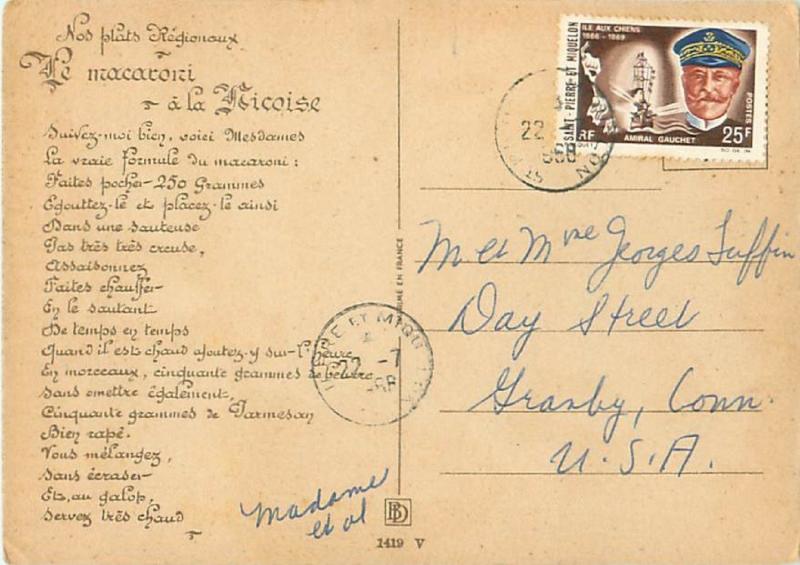 Nos plats Régionaux
Le macaroni
à la Niçoise
Suivez-moi bien, voici Mesdames
La vraie formule du macaroni :
Faites pocher 250 Grammes
Egouttez-le et placez-le ainsi
Dans une sauteuse
Pas très très creuse,
Assaisonnez
Faites chauffer
En le sautant
De temps en temps
Quand il est chaud ajoutez-y sur l'heure
En morceaux, cinquante grammes de beurre
Sans omettre également,
Cinquante grammes de Parmesan
Bien rapé.
Vous mélangez,
Sans écraser
Et, au galop,
Servez très chaud
Madame
et al
BD
1419 V
IMPRIMÉ EN FRANCE
ILE AUX CHIENS
1866 - 1869
SAINT-PIERRE ET MIQUELON
RF
POSTES
AMIRAL GAUCHET
25F
22
968
PIERRE ET MIQU
22 -7
968
M et Mme Georges
Day Street
Granby, Conn.
U.S.A.